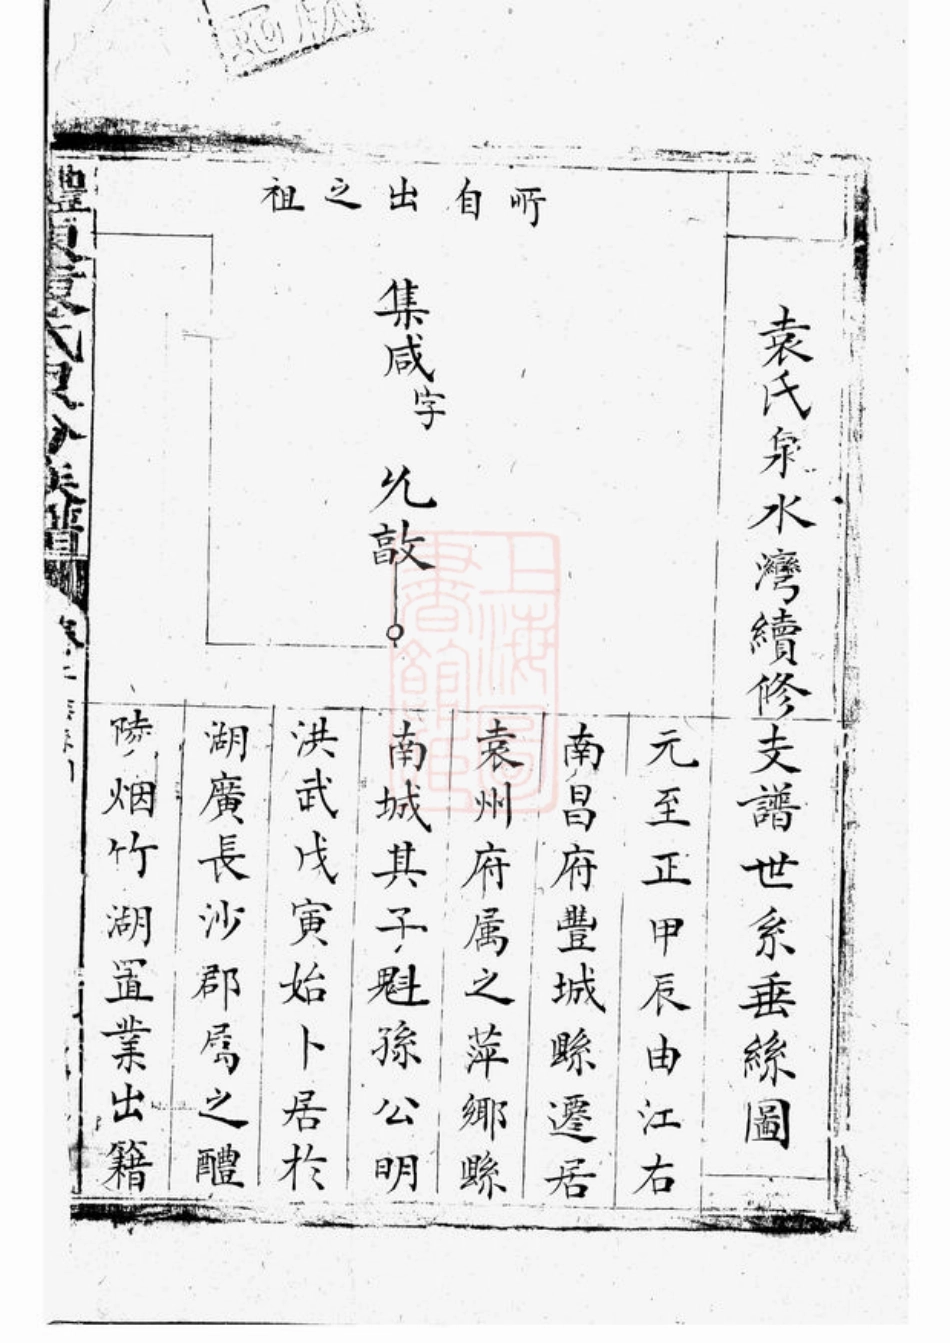 袁氏泉水灣續修支譜世系垂絲圖
所自出之祖
集咸字
允敔
元至正甲辰由江右
南昌府豐城縣遷居
袁州府属之萍鄉縣
南城其子魁孫公明
洪武戊寅始卜居於
湖廣長沙郡属之醴
陵烟竹湖置業出籍
上海圖
書館藏